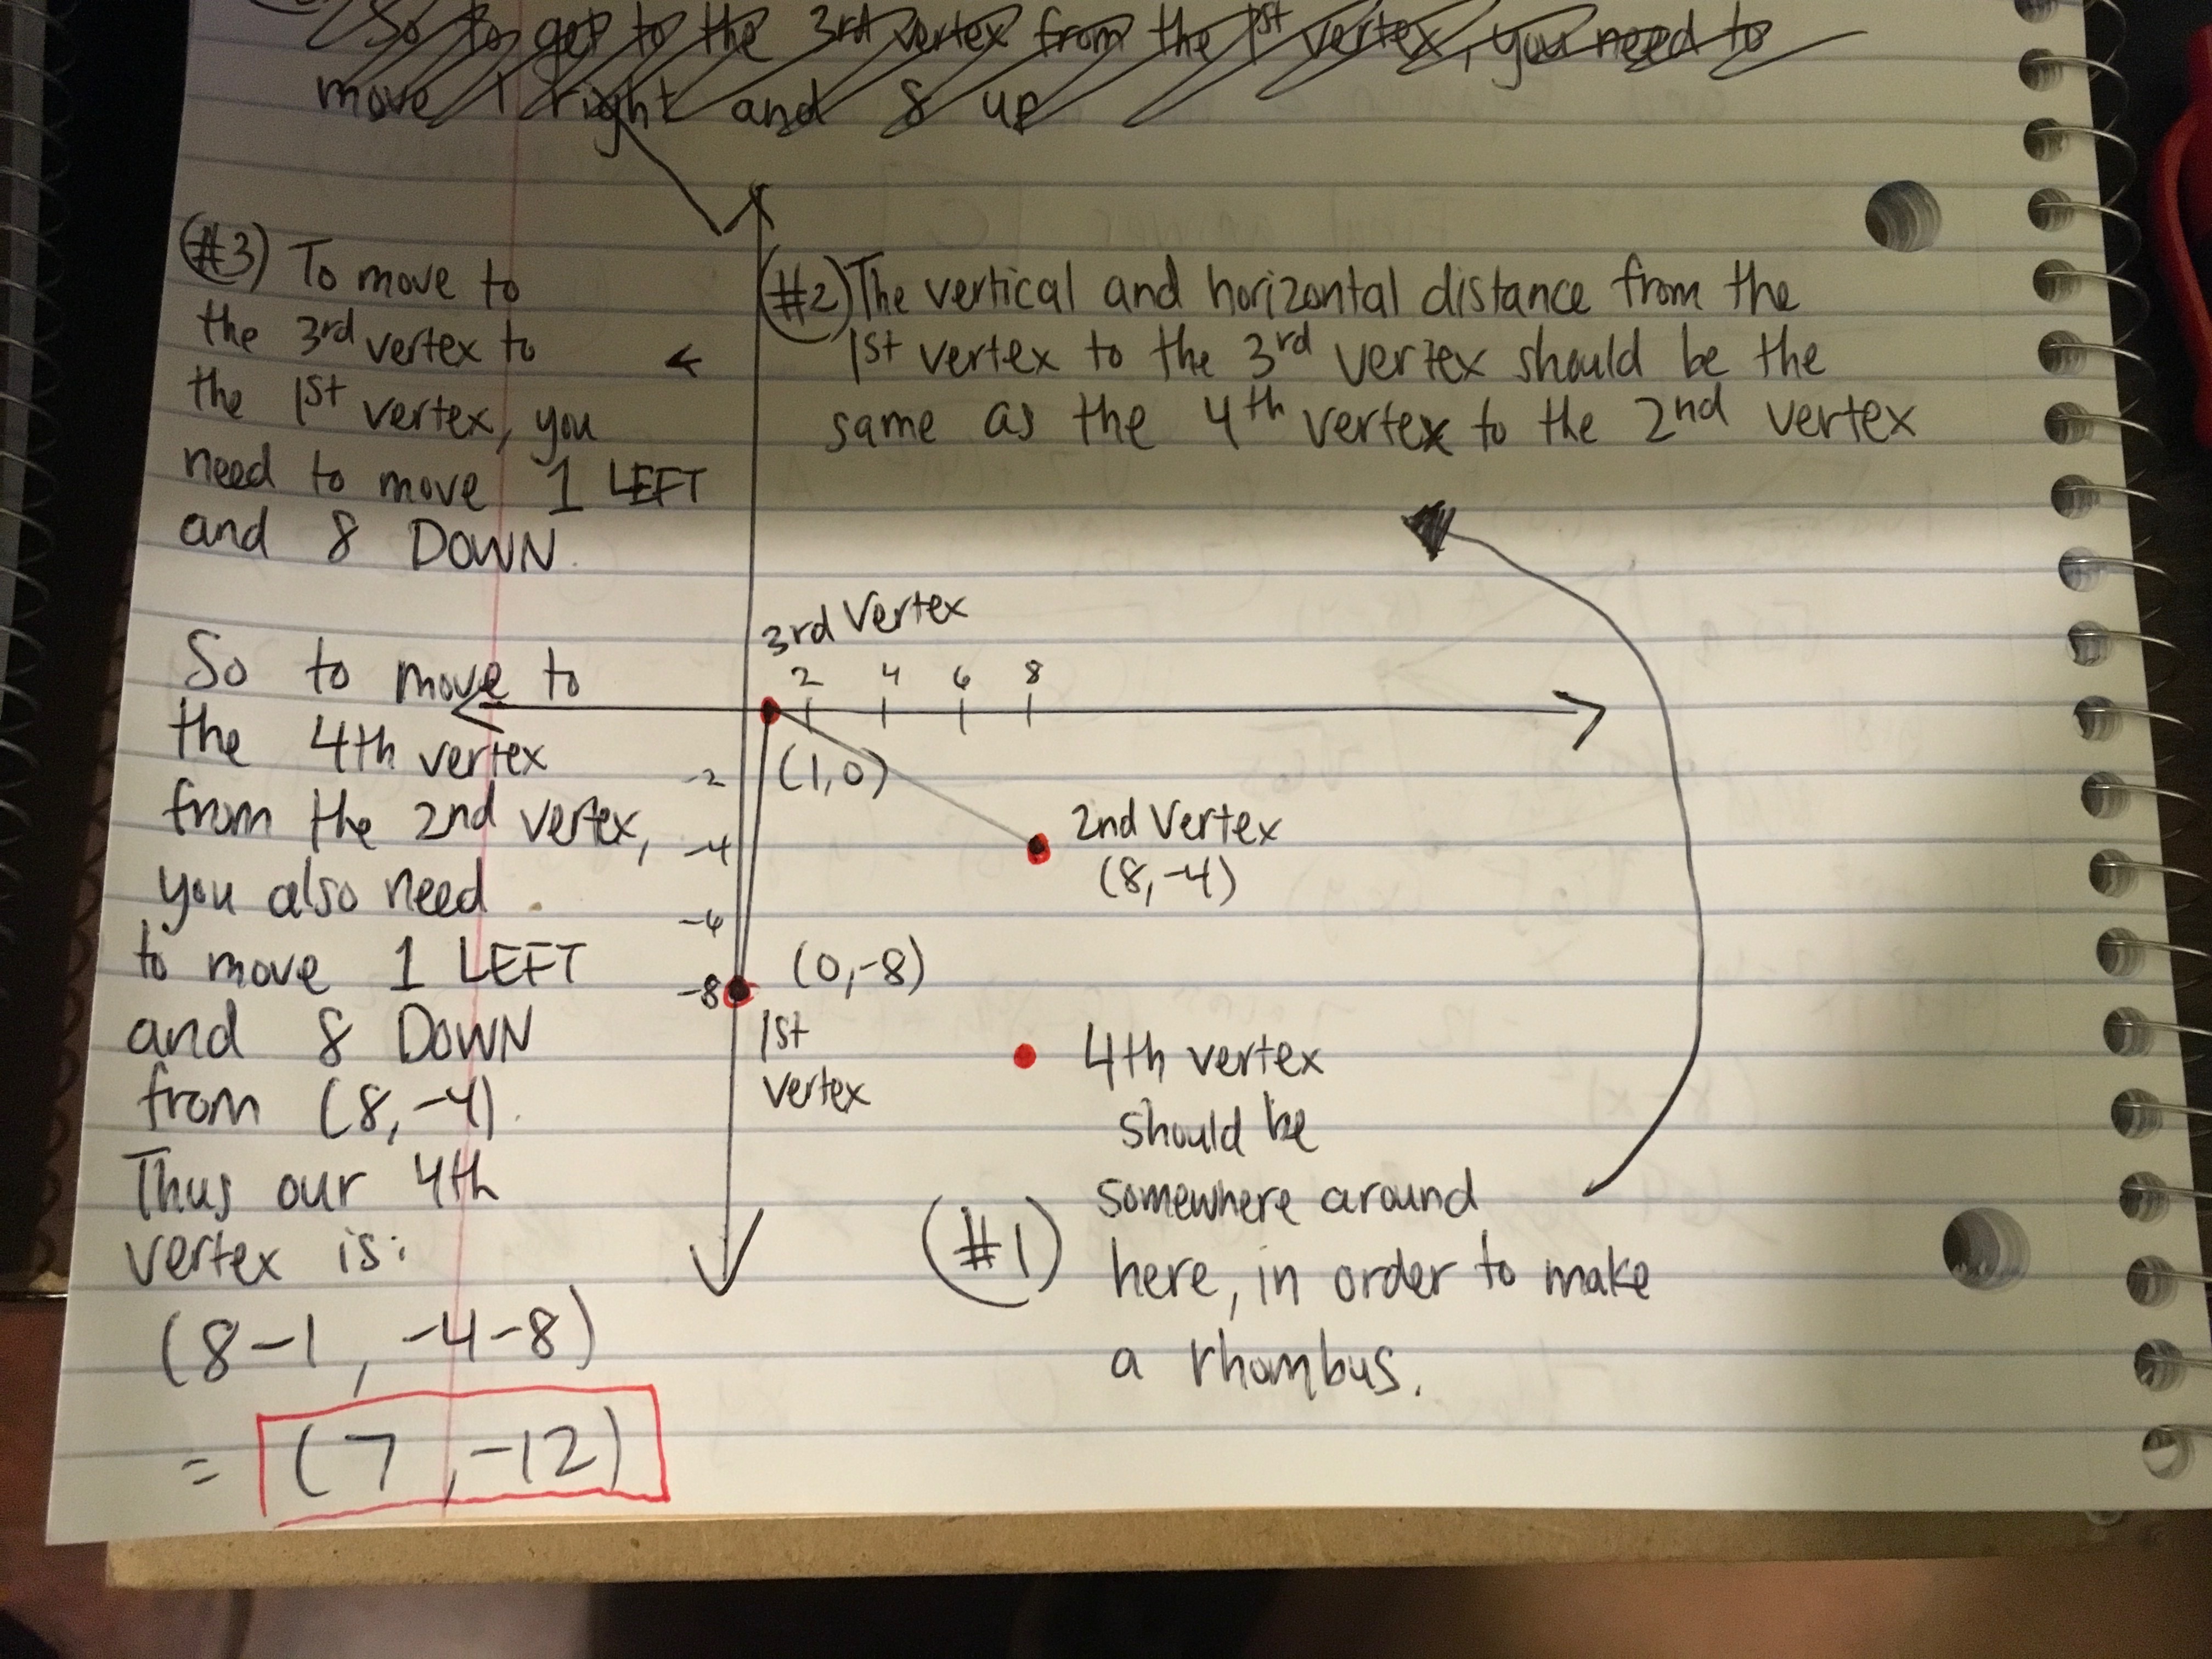 So to get to the 3rd vertex from the 1st vertex, you need to
move 1 right and 8 up
(#3) To move to
the 3rd vertex to
the 1st vertex, you
need to move 1 LEFT
and 8 DOWN.
So to move to
the 4th vertex
from the 2nd vertex,
you also need
to move 1 LEFT
and 8 DOWN
from (8,-4).
Thus our 4th
vertex is:
(8-1, -4-8)
= (7,-12)
(#2) The vertical and horizontal distance from the
1st vertex to the 3rd vertex should be the
same as the 4th vertex to the 2nd vertex
3rd Vertex
2 4 6 8
(1,0)
-2
-4
-6
-8
2nd Vertex
(8,-4)
(0,-8)
1st
vertex
4th vertex
should be
somewhere around
(#1) here, in order to make
a rhombus.